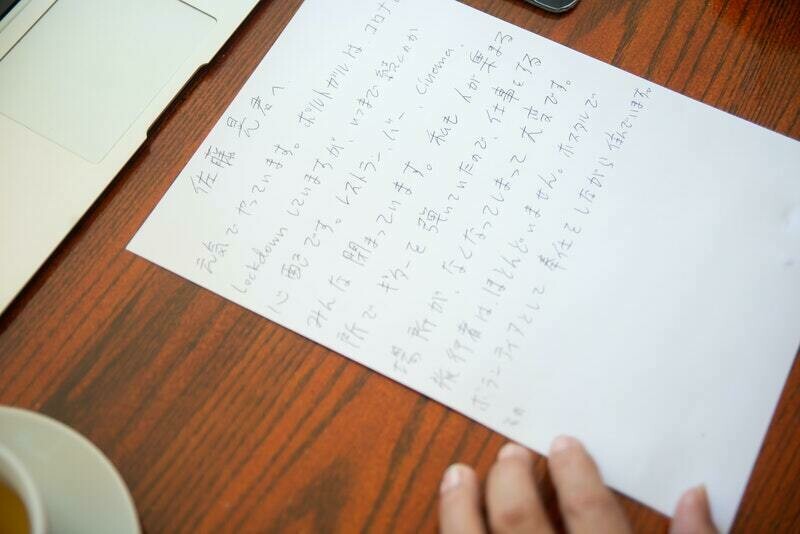 佐藤 晃君へ
元気でやっています。ポルトガルは、コロナ
lockdown していますが、いつまで続くのか
心配です。レストラン、バー、Cinema、
みんな閉まっています。私も人が集まる
所でギターを弾いていたので、仕事をする
場所がなくなってしまって大変です。
旅行者はほとんどいません。ホステルで
ボランティアとして奉仕をしながら住んでいます。